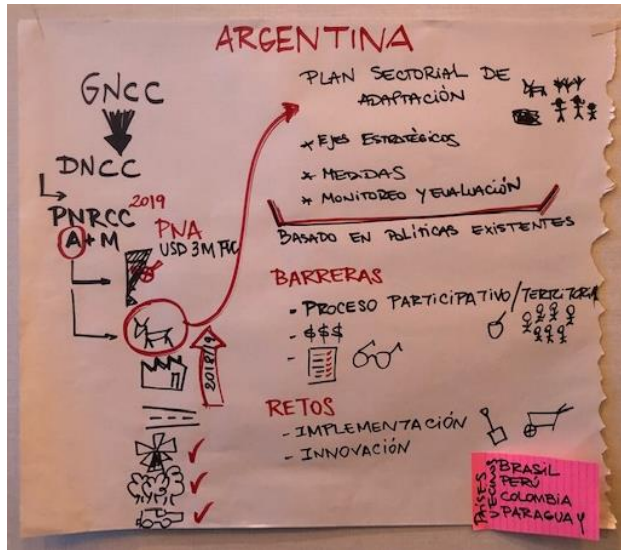 ARGENTINA
GNCC
DNCC
PNRCC
2019
A + M
PNA
USD 3M
2018/19
PLAN SECTORIAL DE
ADAPTACIÓN
* EJES ESTRATÉGICOS
* MEDIDAS
* MONITOREO Y EVALUACIÓN
BASADO EN POLÍTICAS EXISTENTES
BARRERAS
- PROCESO PARTICIPATIVO/TERRITORIAL
- $$$
-
RETOS
- IMPLEMENTACIÓN
- INNOVACIÓN
PAÍSES
VECINOS
BRASIL
PERÚ
COLOMBIA
PARAGUAY